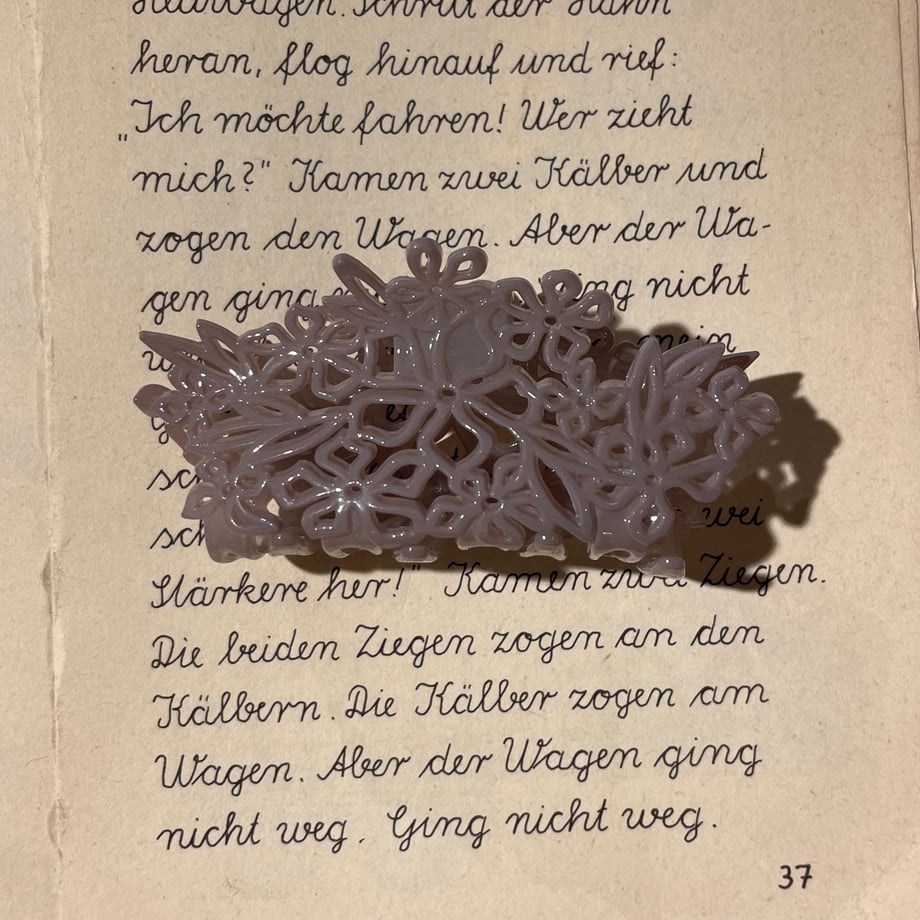 Heuwagen. Schritt der Hahn
heran, flog hinauf und rief:
„Ich möchte fahren! Wer zieht
mich?" Kamen zwei Kälber und
zogen den Wagen. Aber der Wa-
gen ging nicht
mein
sch
sch zwei
Stärkere her!" Kamen zwei Ziegen.
Die beiden Ziegen zogen an den
Kälbern. Die Kälber zogen am
Wagen. Aber der Wagen ging
nicht weg. Ging nicht weg.
37